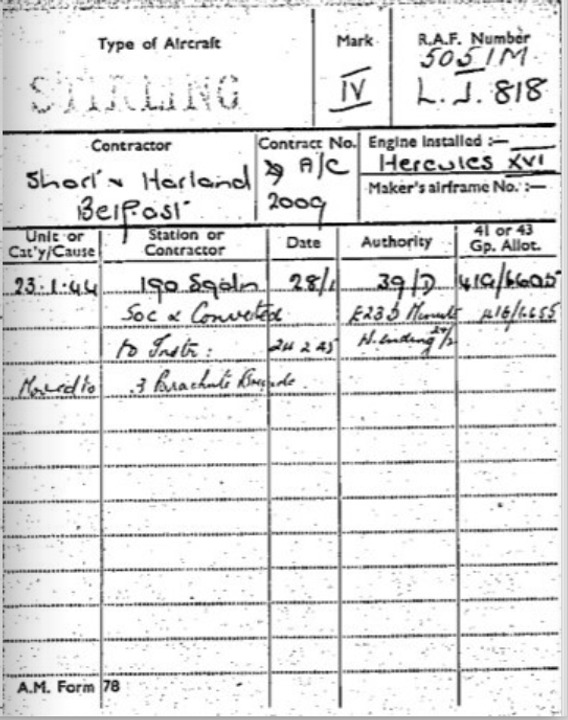 Type of Aircraft
STIRLING
Mark
IV
R.A.F. Number
5051M
L.J. 818
Contractor
Short & Harland
Belfast
Contract No.
A/C
2009
Engine installed :—
Hercules XVI
Maker's airframe No. :—
Unit or Cat'y/Cause
Station or Contractor
Date
Authority
41 or 43 Gp. Allot.
23.1.44 190 Sqdn 28/1 39/D 41G/6605
Soc & Converted E235 Minute
to Instr: 24 2 45 W. ending
3 Parachute
A.M. Form 78